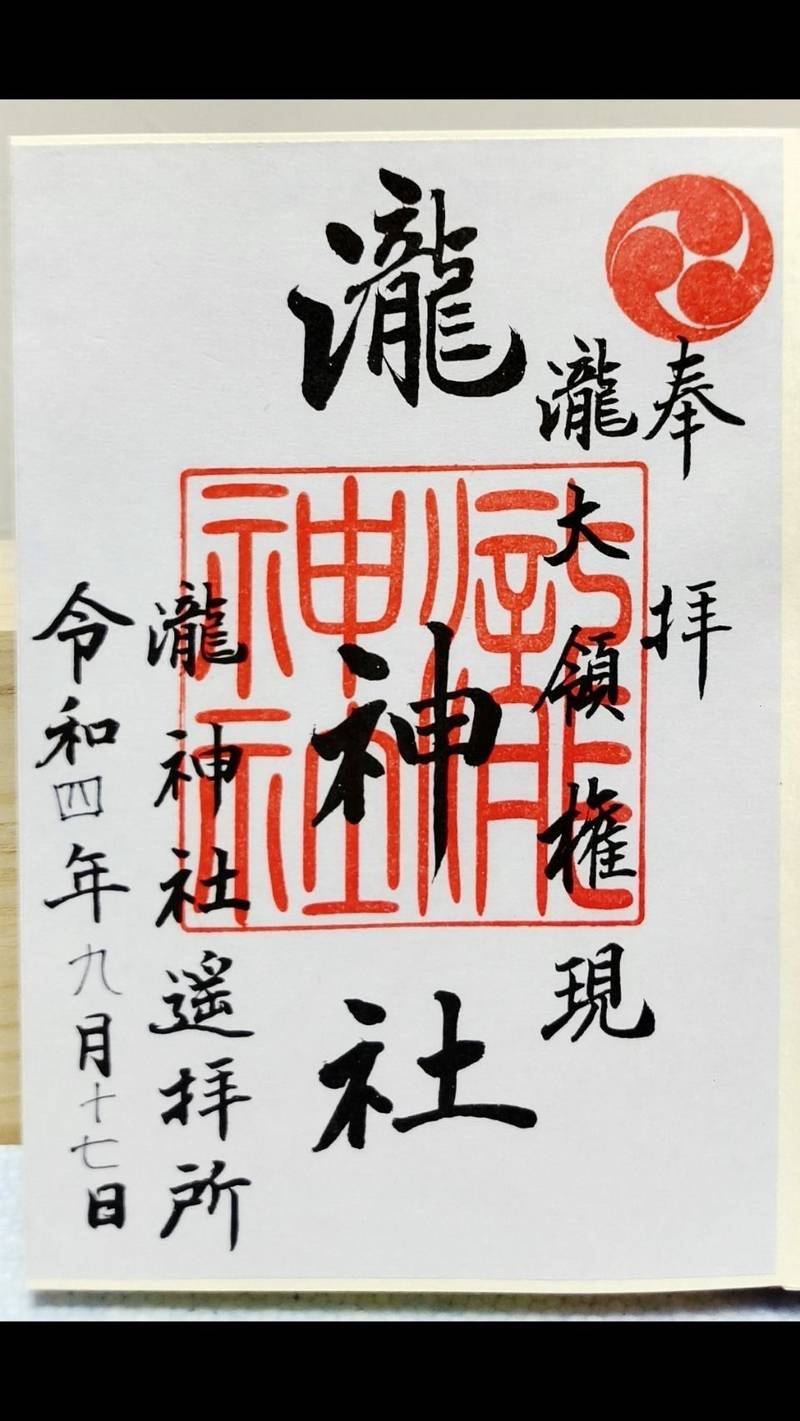 奉拝
瀧大領権現
瀧神社
瀧神社
瀧神社遥拝所
令和四年九月十七日